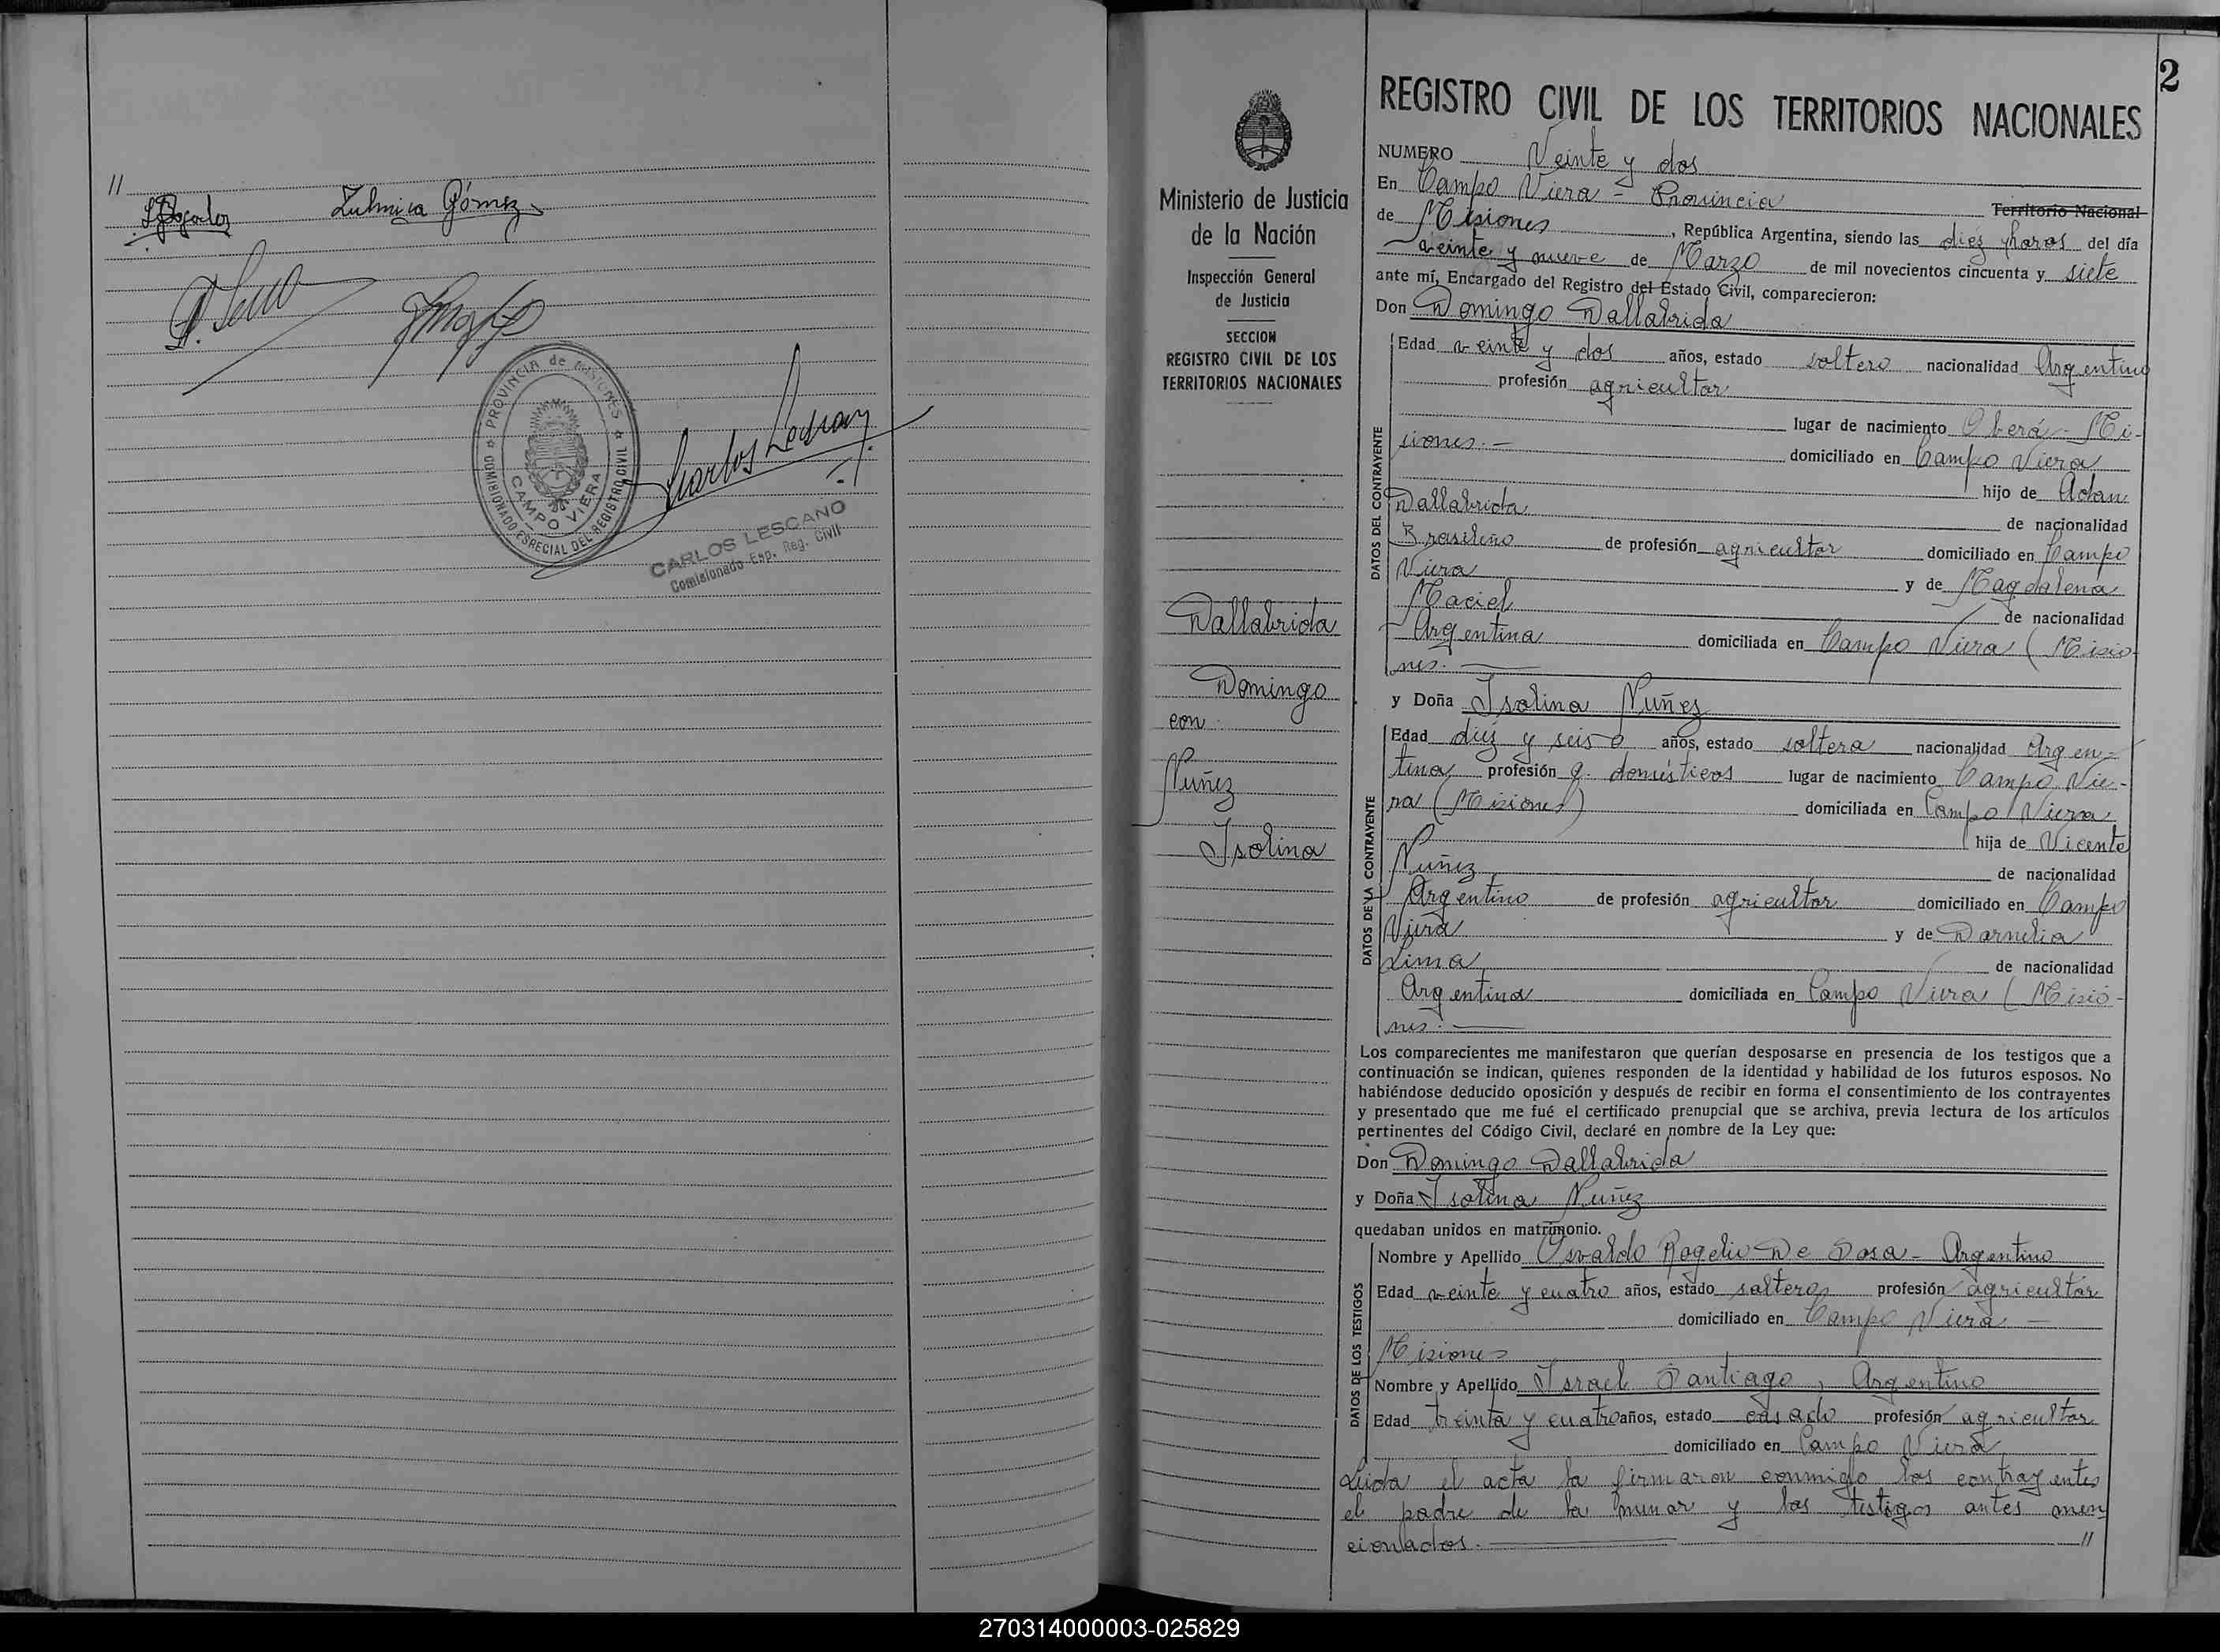 //
Zulmira Gómez
PROVINCIA de MISIONES
COMISIONADO ESPECIAL DEL REGISTRO CIVIL
CAMPO VIERA
CARLOS LESCANO
Comisionado Esp. Reg. Civil
2
Ministerio de Justicia
de la Nación
Inspección General
de Justicia
SECCION
REGISTRO CIVIL DE LOS
TERRITORIOS NACIONALES
Dallabrida
Domingo
con
Nuñez
Isolina
REGISTRO CIVIL DE LOS TERRITORIOS NACIONALES
NUMERO Veinte y dos
En Campo Viera - Provincia Territorio Nacional
de Misiones, República Argentina, siendo las diez horas del día
veinte y nueve de Marzo de mil novecientos cincuenta y siete
ante mí, Encargado del Registro del Estado Civil, comparecieron:
Don Domingo Dallabrida
DATOS DEL CONTRAYENTE
Edad veinte y dos años, estado soltero nacionalidad Argentino
profesión agricultor
lugar de nacimiento Oberá - Mi-
siones.-
domiciliado en Campo Viera
hijo de Adan
Dallabrida
de nacionalidad
Brasileño de profesión agricultor domiciliado en Campo
Viera y de Magdalena
Maciel
de nacionalidad
Argentina domiciliada en Campo Viera (Misio-
nes.
y Doña Isolina Nuñez
DATOS DE LA CONTRAYENTE
Edad diez y seis años, estado soltera nacionalidad Argen-
tina profesión q. domésticos lugar de nacimiento Campo Vie-
ra (Misiones) domiciliada en Campo Viera
hija de Vicente
Nuñez
de nacionalidad
Argentino de profesión agricultor domiciliado en Campo
Viera y de Darnelia
Lima
de nacionalidad
Argentina domiciliada en Campo Viera (Misio-
nes.
Los comparecientes me manifestaron que querían desposarse en presencia de los testigos que a
continuación se indican, quienes responden de la identidad y habilidad de los futuros esposos. No
habiéndose deducido oposición y después de recibir en forma el consentimiento de los contrayentes
y presentado que me fué el certificado prenupcial que se archiva, previa lectura de los artículos
pertinentes del Código Civil, declaré en nombre de la Ley que:
Don Domingo Dallabrida
y Doña Isolina Nuñez
quedaban unidos en matrimonio.
DATOS DE LOS TESTIGOS
Nombre y Apellido Osvaldo Rogelio De Sosa - Argentino
Edad veinte y cuatro años, estado soltero profesión agricultor
domiciliado en Campo Viera -
Misiones
Nombre y Apellido Israel Santiago, Argentino
Edad treinta y cuatro años, estado casado profesión agricultor
domiciliado en Campo Viera
Leida el acta la firmaron conmigo los contrayentes
el padre de la menor y los testigos antes men
cionados. //
270314000003-025829